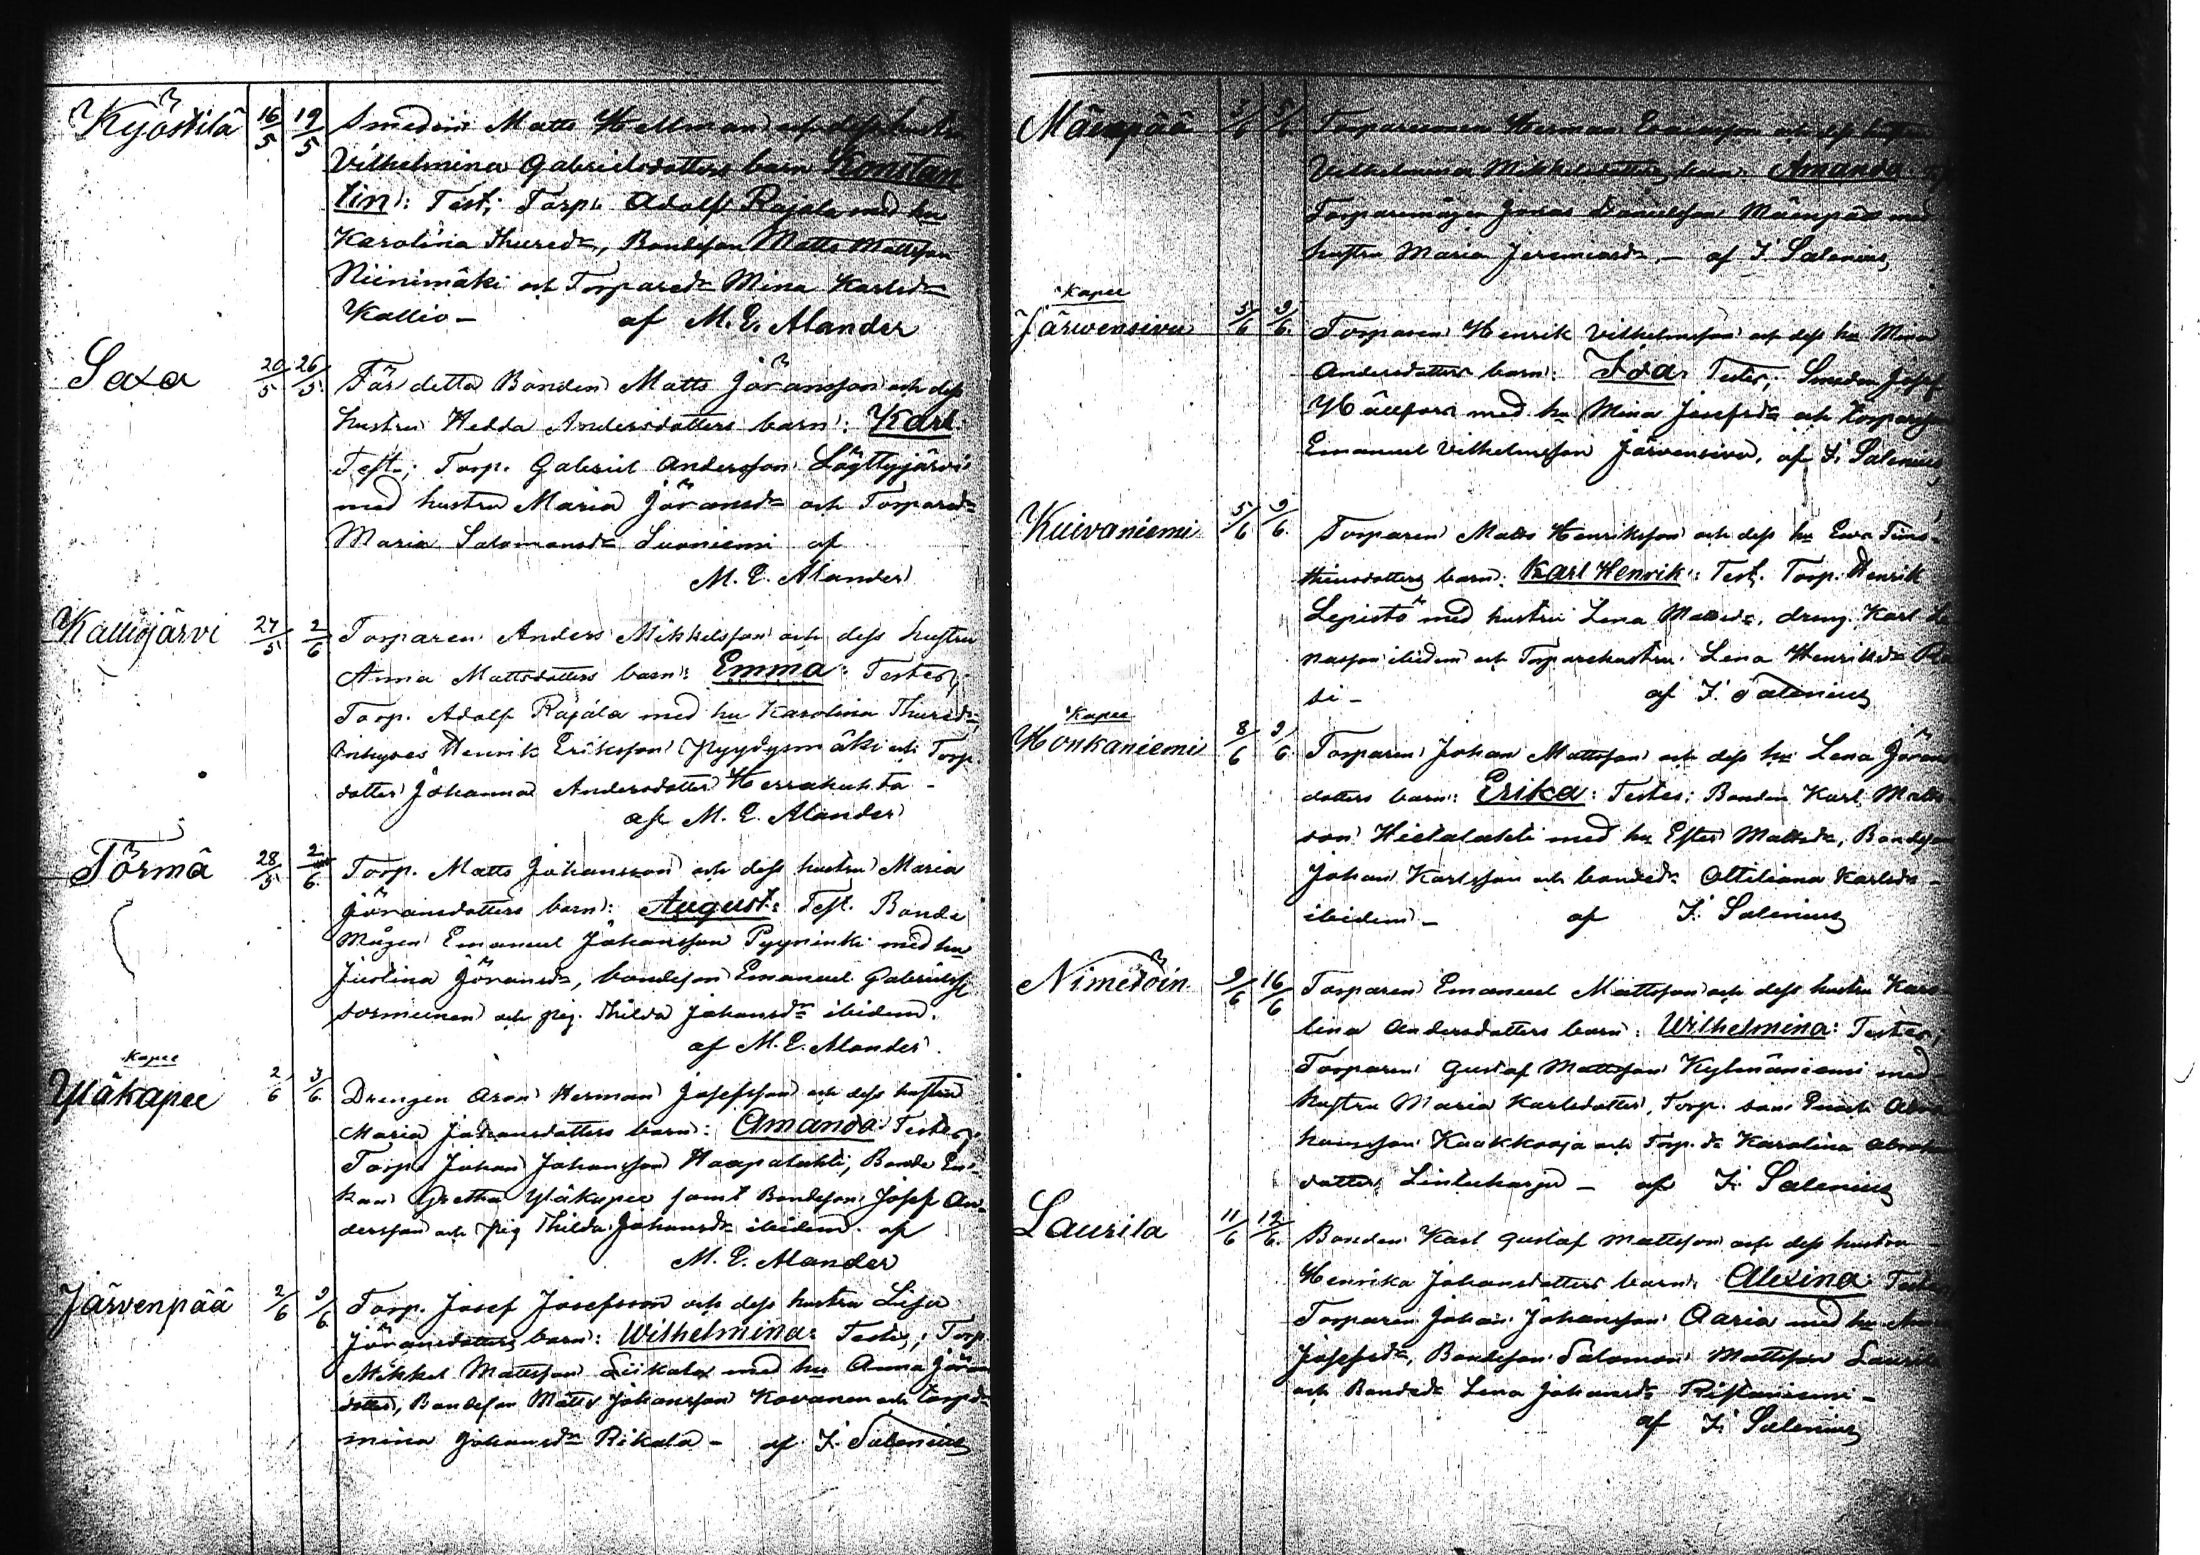 Kyöstilä 16/5 19/5 Smeden Matts Hellman och dess hustru
Vilhelmina Gabrielsdotters barn Konstan
tin: Test; Torp. Adolf Rajala med hu
Karolina Thuresdr, Bondeson Matts Mattsson
Niinimäki och Torparedr Mina Karlsdr
Kallio - af M. E. Alander
Saxa 20/5 26/5 Får detta Bonden Matts Göransson och dess
hustru Hedda Andersdotters barn: Karl
Test; Torp. Gabriel Andersson Löyttyjärvi
med hustru Maria Göransdr och Torparedr
Maria Salomonsdr Suoniemi af
M. E. Alander
Kalliojärvi 27/5 2/6 Torparen Anders Mikkelsson och dess hustru
Anna Mattsdotters barn: Emma: Testes;
Torp. Adolf Rajala med hu Karolina Thuresdr,
Inhyses Henrik Eriksson Pyydysmäki och Torp.
dotter Johanna Andersdotter Herrakuhta -
af M. E. Alander
Törmä 28/5 2/6 Torp. Matts Johansson och dess hustru Maria
Göransdotters barn: August: Test. Bonde
mågen Emanuel Johansson Pyyninki med hu
Justina Göransdr, bondeson Emanuel Gabrielss
Sormunen och pig. Thilda Johansdr ibidem.
af M. E. Alander.
Kapee
Yläkapee 2/6 3/6 Drengen Aron Herman Josefsson och dess hustru
Maria Johansdotters barn: Amanda: Testes;
Torp. Johan Johansson Haapalahti, Bonde En-
kan Gretha Yläkapee samt Bondeson Josef An-
dersson och pig Thilda Johansdr ibidem. af
M. E. Alander
Järvenpää 2/6 9/6 Torp. Josef Josefsson och dess hustru Lisa
Göransdotters barn: Wilhelmina: Testes; Torp.
Mikkel Mattsson Siikala med hu Anna Görans
dotter, Bondeson Matts Johansson Kovanen och torpdr
mina Johansdr Rikala - af F. Salenius
Mäenpää 3/6 5/6 Torparesonen Herman och dess hustru
Vilhelmina Mikkelsdotters barn: Amanda
Torparemågen Jonas Danielsson Mäenpää med
hustru Maria Jeremiasdr - af F. Salenius
Kapee
Järwensivu 5/6 9/6 Torparen Henrik Vilhelmsson och dess hu Mina
Andersdotters barn: Ida: Testes; Smeden Josef
Hällfors med hu Mina Josefsdr och torpareson
Emanuel Vilhelmsson Järvensivu, af F. Salenius
Kuivaniemi 5/6 9/6 Torparen Matts Henriksson och dess hu Eva Tims-
theusdotters barn: Karl Henrik: Test. Torp. Henrik
Lepistö med hustru Lena Mattsdr, dreng. Karl Le
nasson ibidem och Torparehustru Lena Henriksdr
si - af F. Salenius
Kapee
Honkaniemi 8/6 9/6 Torparen Johan Mattsson och dess hu Lena Görans
dotters barn: Erika: Testes: Bonden Karl Matts-
son Hietalahti med hu Ester Mattsdr, Bondeson
Johan Karlsson och bondedr Ottiliana Karlsdr -
ibidem - af F. Salenius
Nimetöin 9/6 16/6 Torparen Emanuel Mattsson och dess hustru Karo-
lina Andersdotters barn: Wilhelmina: Testes;
Torparen Gustaf Mattsson Kylmäniemi med
hustru Maria Karlsdotter, Torp. son Enoch Abra
hamsson Kaakkooja och Torp. dr Karolina Abraham
dotter Lintuharju - af F. Salenius
Laurila 11/6 12/6 Bonden Karl Gustaf Mattsson och dess hustru
Henrika Johansdotters barn: Alexina Testes
Torparen Johan Johansson Aaria med hu
Josefsdr, Bondeson Salomon Mattsson Laurila
och Bondedr Lena Johansdr Ristaniemi -
af F. Salenius